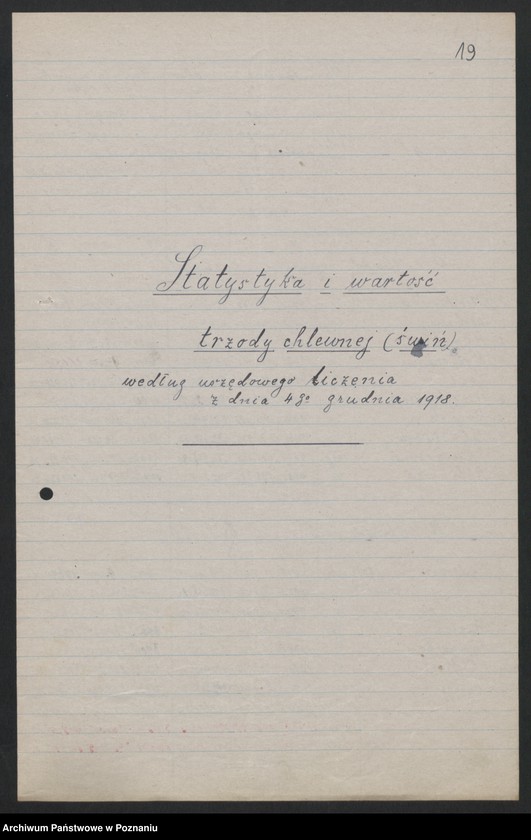 19
Statystyka i wartość
trzody chlewnej (świń)
według urzędowego liczenia
z dnia 4go grudnia 1918.
Archiwum Państwowe w Poznaniu